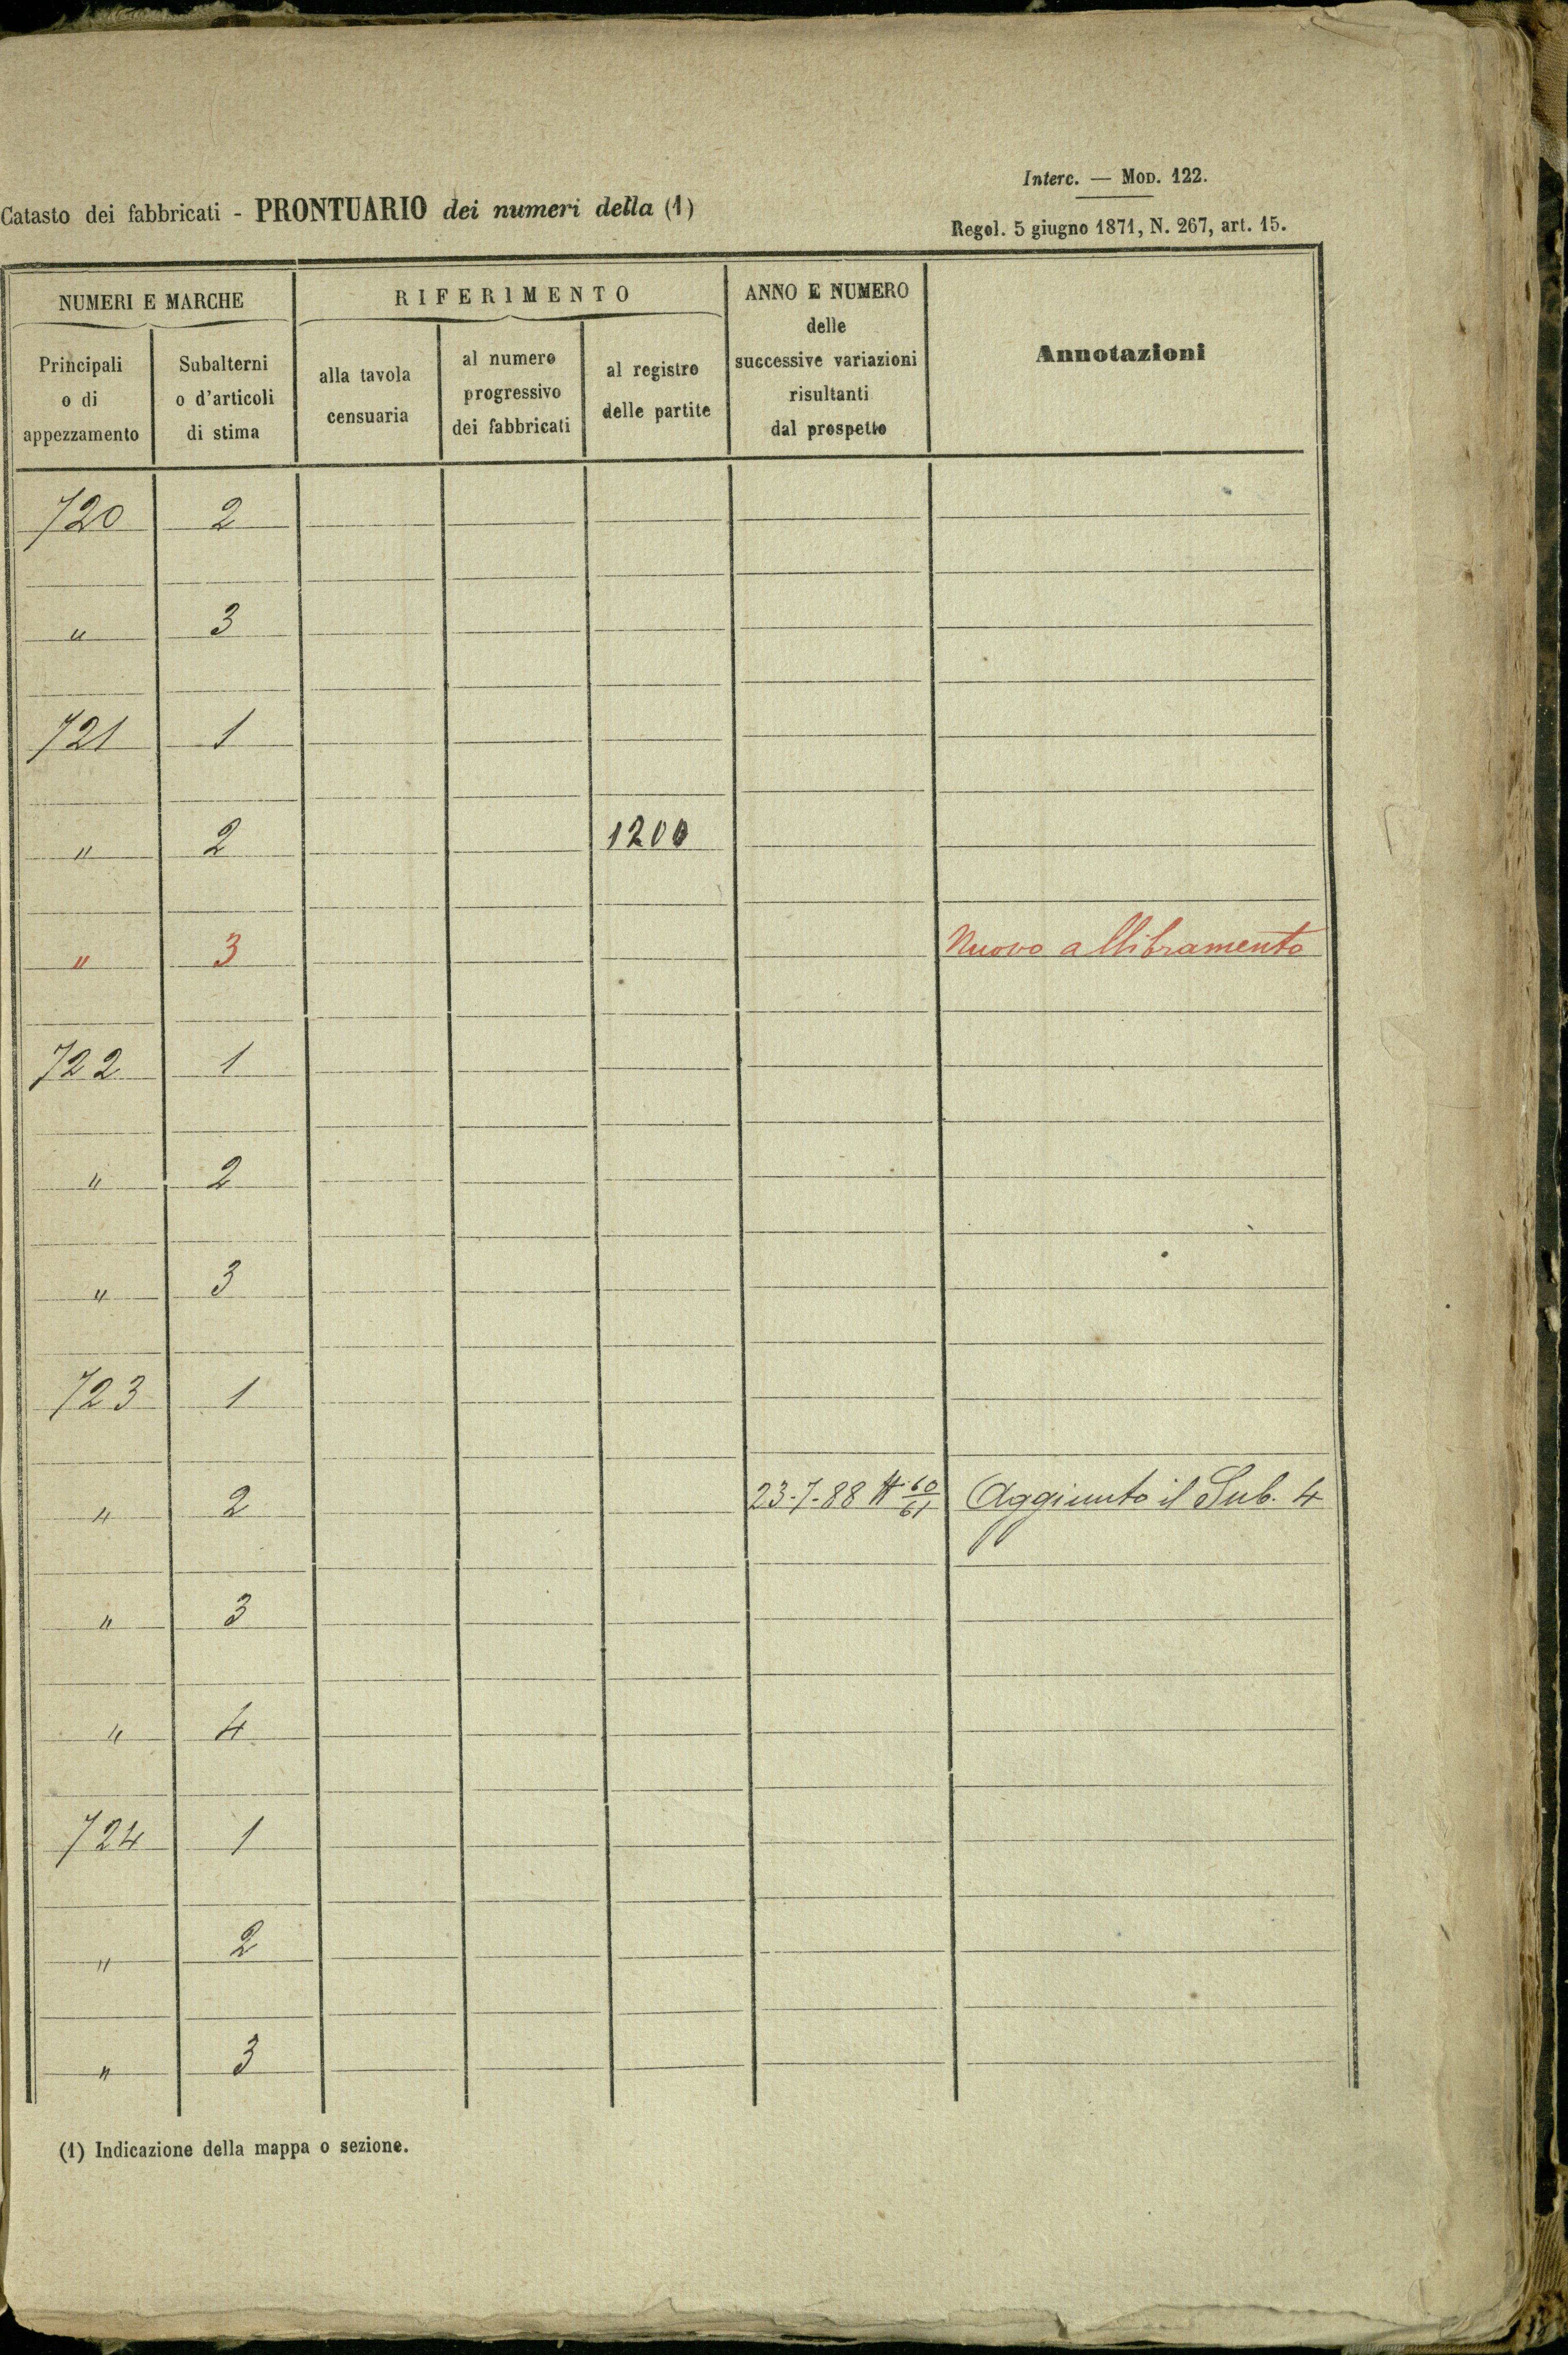 Interc. — Mod. 122.
Catasto dei fabbricati - PRONTUARIO dei numeri della (1)
Regol. 5 giugno 1871, N. 267, art. 15.
NUMERI E MARCHE
RIFERIMENTO
ANNO E NUMERO
delle
successive variazioni
risultanti
dal prospetto
Annotazioni
Principali
o di
appezzamento
Subalterni
o d'articoli
di stima
alla tavola
censuaria
al numero
progressivo
dei fabbricati
al registro
delle partite
720 2
" 3
721 1
" 2 1200
" 3 Nuovo allibramento
722 1
" 2
" 3
723 1
" 2 23-7-88 60/61 Aggiunto il Sub. 4
" 3
" 4
724 1
" 2
" 3
(1) Indicazione della mappa o sezione.